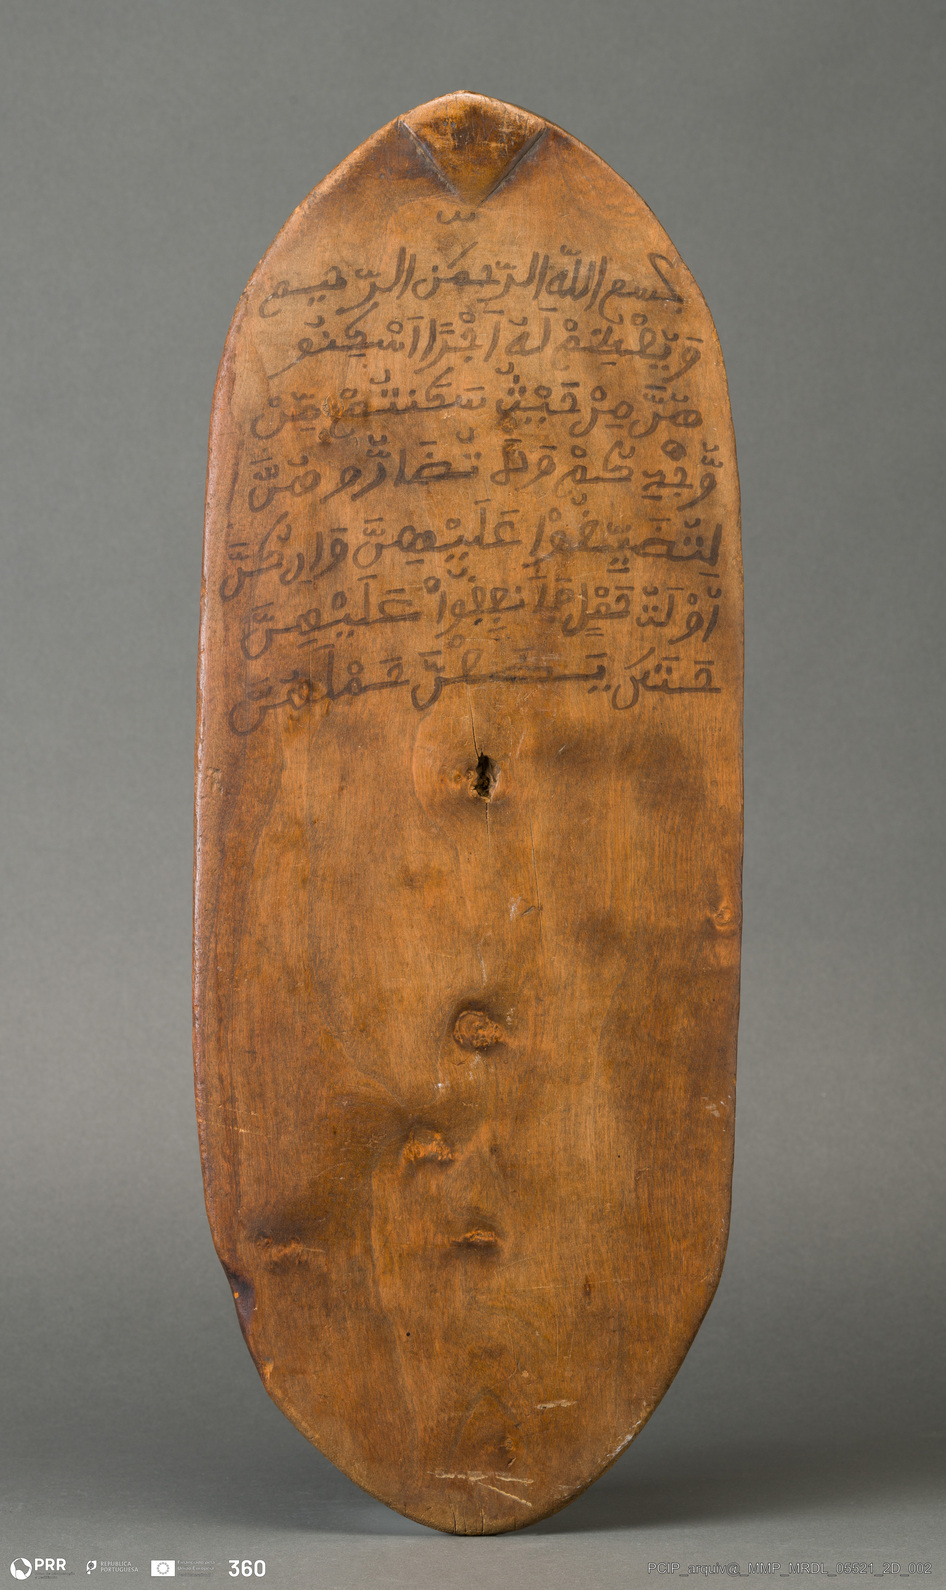 بسم الله الرحمن الرحيم
وَيُعْظِمْ لَهُ أَجْرًا أَسْكِنُو
هُنَّ مِنْ حَيْثُ سَكَنْتُمْ مِنْ
وُّجْدِكُمْ وَلَا تُضَارُّوهُنَّ
لِتُضَيِّقُوا عَلَيْهِنَّ وَإِنْ كُنَّ
أُوْلَتِ حَمْلٍ فَأَنْفِقُوا عَلَيْهِنَّ
حَتَّى يَضَعْنَ حَمْلَهُنَّ
PRR
REPÚBLICA
PORTUGUESA
360
PCIP_arquiv@_MMP_MRDL_05521_2D_002